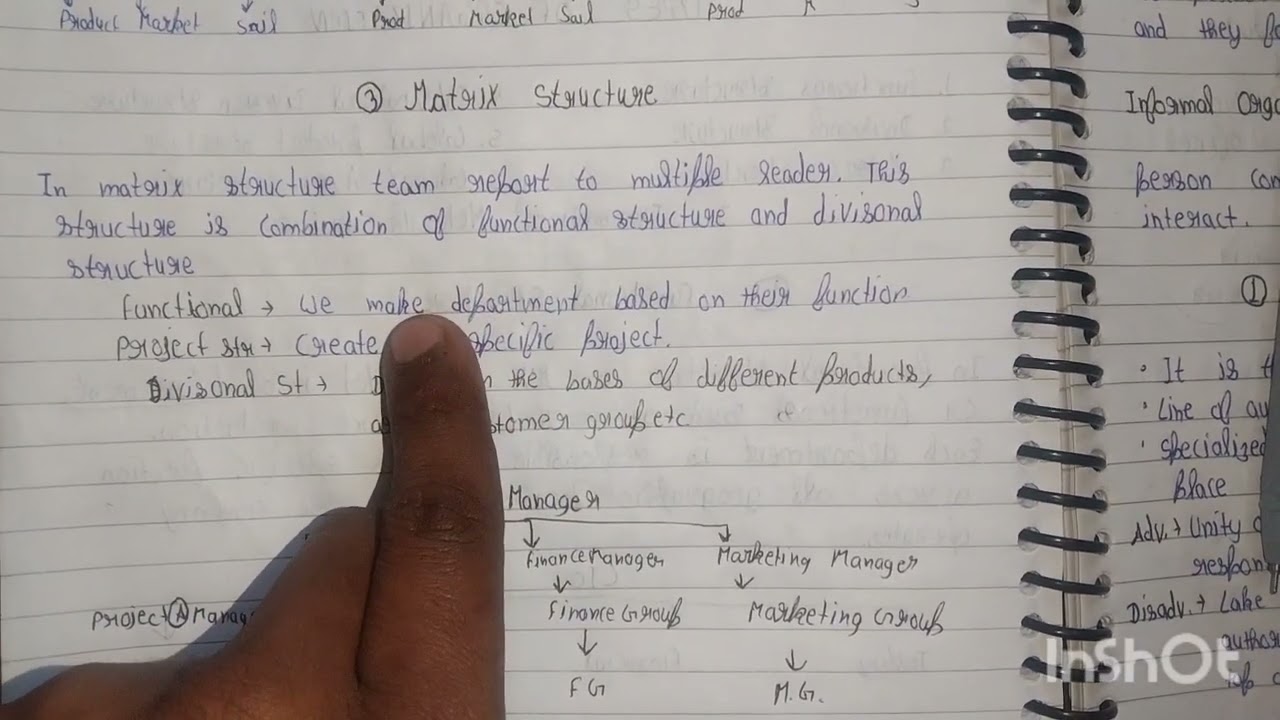 Product Market Sail Prod Market Sail Prod
③ Matrix Structure
In matrix structure team report to multiple leader. This
structure is combination of functional structure and divisonal
structure
Functional → We make department based on their function
Project str → Create specific project.
Divisonal St → the bases of different products,
group etc
Manager
Finance Manager Marketing Manager
Project Ⓐ
Finance Group Marketing Group
F G M.G.
and they
Informal
Person
interact.
①
• It is
• Line of
• specialized
place
Adv. → Unity
Disadv. → Lake
InShOt